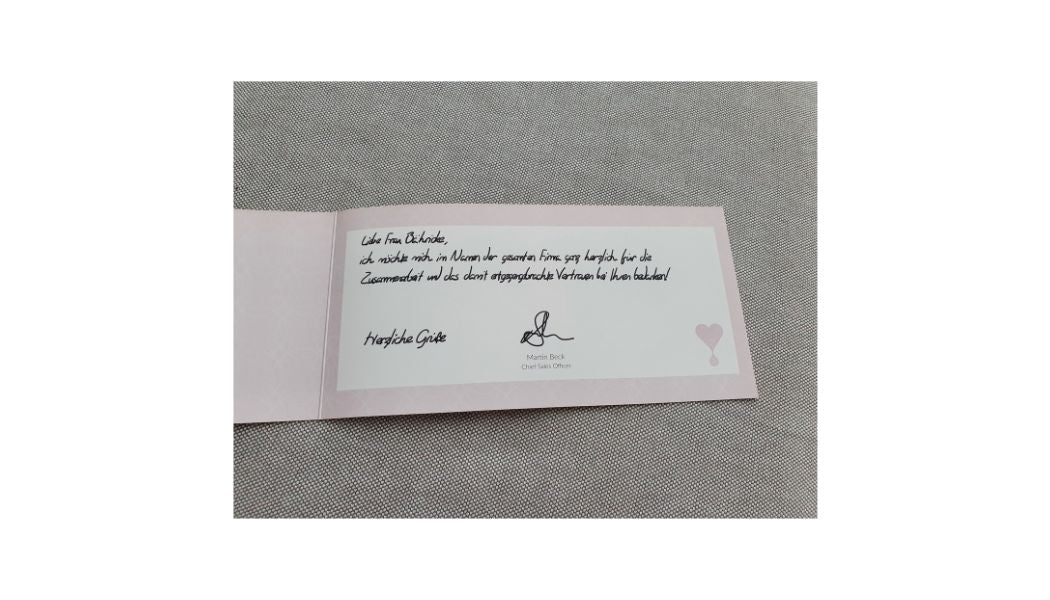 Liebe Frau Bähncke,
ich möchte mich im Namen der gesamten Firma ganz herzlich für die
Zusammenarbeit und das damit entgegengebrachte Vertrauen bei Ihnen bedanken!
Herzliche Grüße
Martin Beck
Chief Sales Officer